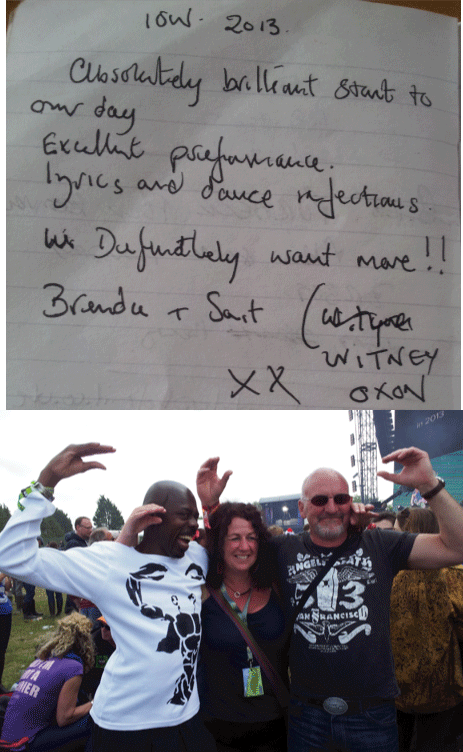 IOW. 2013.
Absolutely brilliant start to
our day
Excellent preformance.
lyrics and dance infectious.
We Defunitlely want more!!
Brenda + Sait (Witney
WITNEY
XX OXON
in 2013
ANGEL
13
SAN FRANCISCO